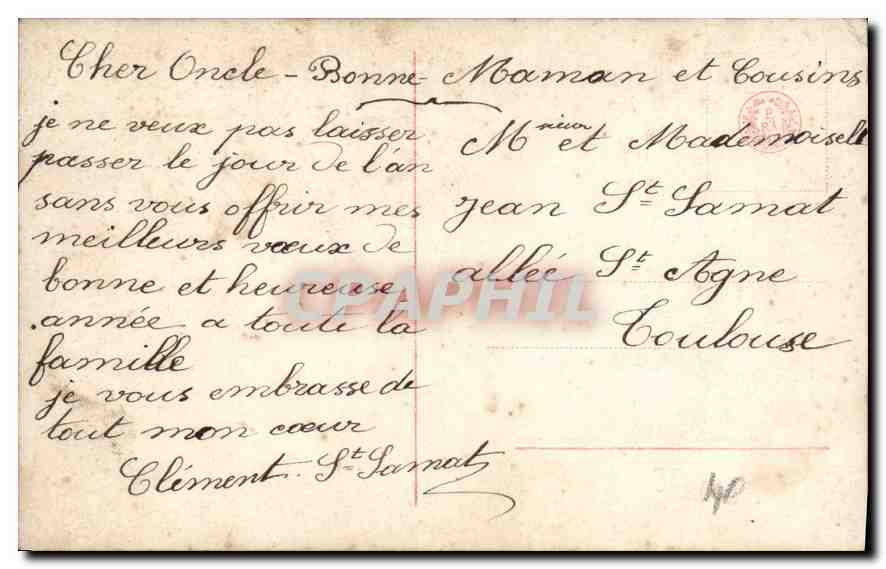 Cher Oncle - Bonne - Maman et Cousins
je ne veux pas laisser
passer le jour de l'an
sans vous offrir mes
meilleurs vœux de
bonne et heureuse
année a toute la
famille
je vous embrasse de
tout mon cœur
Clément. St Lamat
Mrsieur et Mademoiselle
Jean St Lamat
allée St Agne
Toulouse
40
CPAPHIL